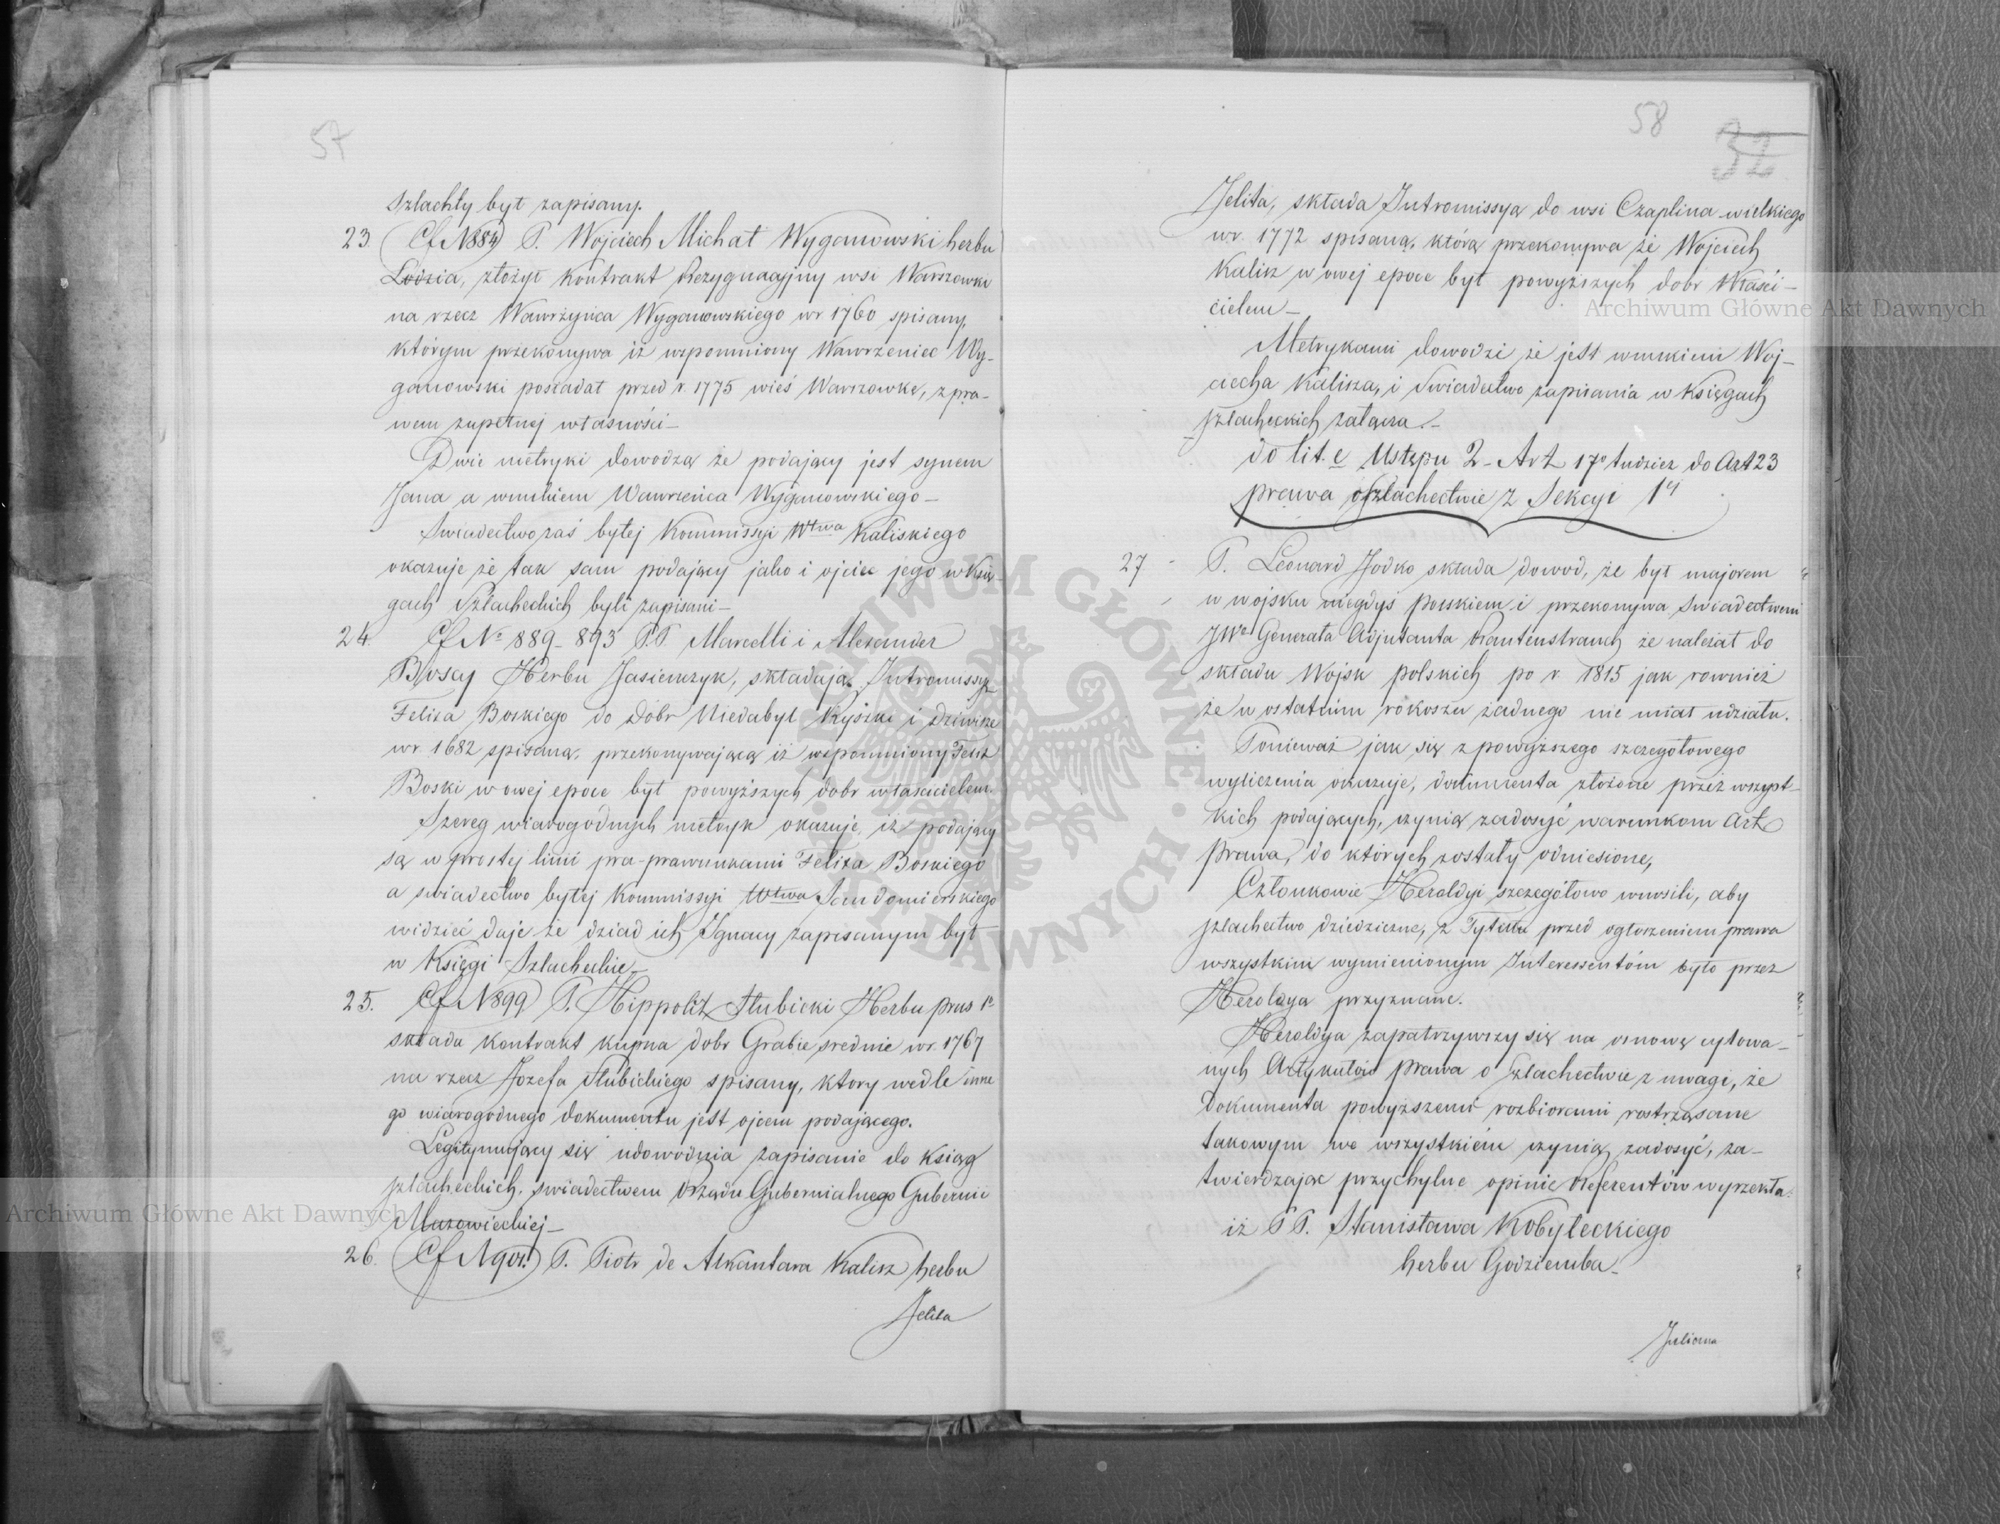 57
szlachty był zapisany.
23. Cf N 884) P. Wojciech Michał Wyganowski herbu
Łodzia, złożył kontrakt Rezygnacyjny wsi Warszowki
na rzecz Wawrzyńca Wyganowskiego w r 1760 spisany,
którym przekonywa iż wspomniony Wawrzeniec Wy-
ganowski posiadał przed r. 1775 wieś Warszowkę, z pra-
wem zupełnej własności –
Dwie metryki dowodzą że podający jest synem
Jana a wnukiem Wawrzeńca Wyganowskiego –
Swiadectwo zaś byłej Kommissyi Wtwa Kaliskiego
okazuje że tak sam podający jako i ojciec jego w Księ-
gach Szlacheckich byli zapisani –
24. Cf № 889 – 893 P.P. Marcelli i Alexander
Boscy Herbu Jasieńczyk, składają Intromissyę
Felixa Boskiego do Dóbr Niedabyl Ryszki i Dziwisze
w r 1682 spisaną, przekonywającą iż wspomniony Felix
Boski w owej epoce był powyższych dobr właścicielem.
Szereg wiarogodnych metryk okazuje, iż podający
są w prostej linii pra-prawnukami Felixa Boskiego
a swiadectwo byłej Kommissyi Wtwa Sandomierskiego
widzieć daje że dziad ich Ignacy zapisanym był
w Księgi Szlacheckie –
25. Cf N 899) P. Hippolit Słubicki Herbu prus 1º
składa kontrakt kupna dobr Grabie srednie w r. 1767
na rzecz Jozefa Słubickiego spisany, ktory wedle inne
go wiarogodnego dokumentu jest ojcem podającego.
Legitymujący się udowodnia zapisanie do ksiąg
szlacheckich, swiadectwem Urzędu Gubernialnego Gubernii
Mazowieckiej –
26. Cf N 901.) P. Piotr de Alkantara Kalisz herbu
Jelita
58
32
Jelita, składa Intromissyą do wsi Czaplina wielkiego
w r. 1772 spisaną, która przekonywa że Wojciech
Kalisz w owej epoce był powyższych dobr Właści-
cielem –
Metrykami dowodzi że jest wnukiem Woj-
ciecha Kalisza, i Swiadectwo zapisania w Księgach
szlacheckich załącza. –
do lit. e Ustępu 2 – Art 17º tudzież do Art 23
prawa o szlachectwie z Sekcyi 1ej
27 P. Leonard Jodko składa dowod, że był majorem
w wojsku niegdyś polskiem i przekonywa swiadectwem
JWº Generała Adjutanta Rautenstrauch że należał do
składu Wojsk polskich po r. 1815 jak rownież
że w ostatnim rokoszu żadnego nie miał udziału.
Ponieważ jak się z powyższego szczegołowego
wyliczenia okazuje, dokumenta złożone przez wszyst-
kich podających, czynią zadosyć warunkom Art.
Prawa, do których zostały odniesione,
Członkowie Heroldyi szczegółowo wnosili, aby
szlachectwo dziedziczne, z Tytułu przed ogłoszeniem prawa
wszystkim wymienionym Interessentóm było przez
Heroldyą przyznane.
Heroldya zapatrzywszy się na osnowę cytowa-
nych Artykułów Prawa o szlachectwie z uwagi, że
Dokumenta powyższemi rozbiorami roztrząsane
takowym we wszystkiém czynią zadosyć, za-
twierdzając przychylne opinie Referentów wyrzekła
iż P P. Stanisława Kobyłeckiego
herbu Godziemba –
Juliana
Archiwum Główne Akt Dawnych
Archiwum Główne Akt Dawnych
ARCHIWUM GŁÓWNE AKT DAWNYCH